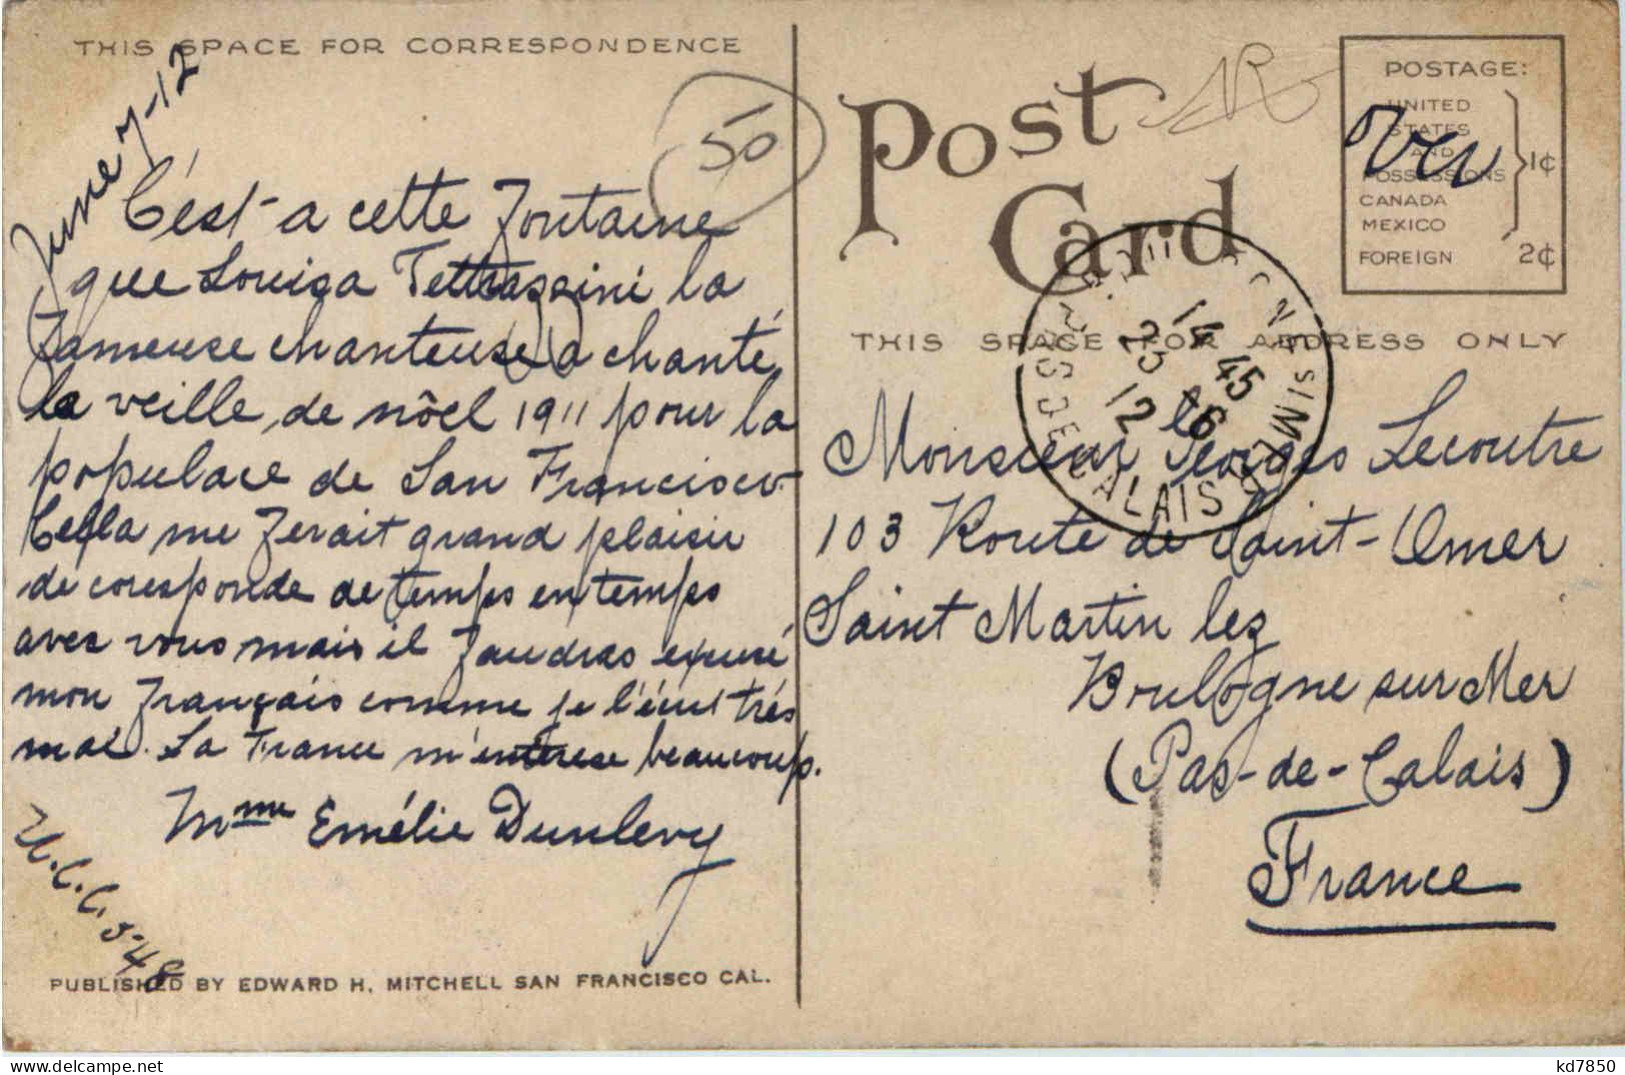 THIS SPACE FOR CORRESPONDENCE
June 7-12
50
C'est-a cette Fontaine
que Louisa Tettrazzini la
fameuse chanteuse a chanté
la veille de nôel 1911 pour la
populace de San Francisco.
Cella me ferait grand plaisir
de coresponde de temps en temps
avec vous mais il faudras excusé
mon français comme je l'écris très
mal. La France m'interese beaucoup.
Mme Emélie Dunlevy
U.C.C. 5-48
PUBLISHED BY EDWARD H. MITCHELL SAN FRANCISCO CAL.
Post Card
POSTAGE:
UNITED
STATES
AND
POSSESSIONS
CANADA
MEXICO
1¢
FOREIGN 2¢
Over
THIS SPACE FOR ADDRESS ONLY
14 45
25 6
12
CALAIS
Monsieur Georges Lecoutre
103 Route de Saint-Omer
Saint Martin lez
Boulogne sur Mer
(Pas-de-Calais)
France
kd7850